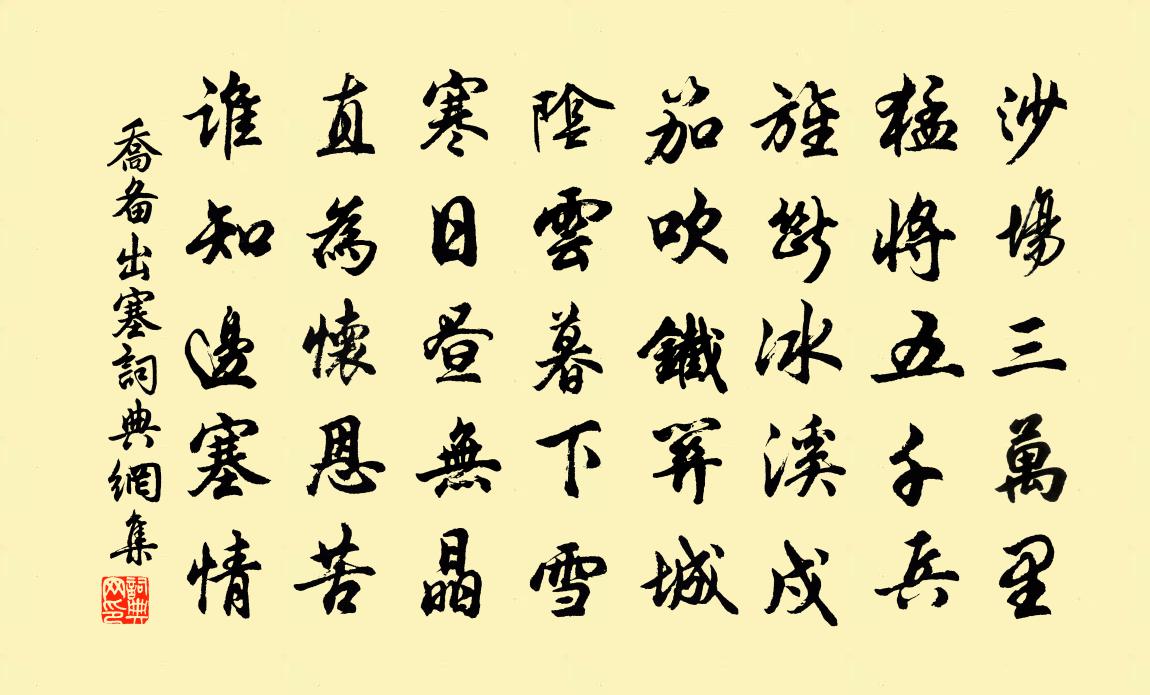 沙場三萬里
猛將五千兵
旌斷冰溪戍
笳吹鐵關城
陰雲暮下雪
寒日晝無晶
直為懷恩苦
誰知邊塞情
喬备出塞詞典網集
詞典
网印